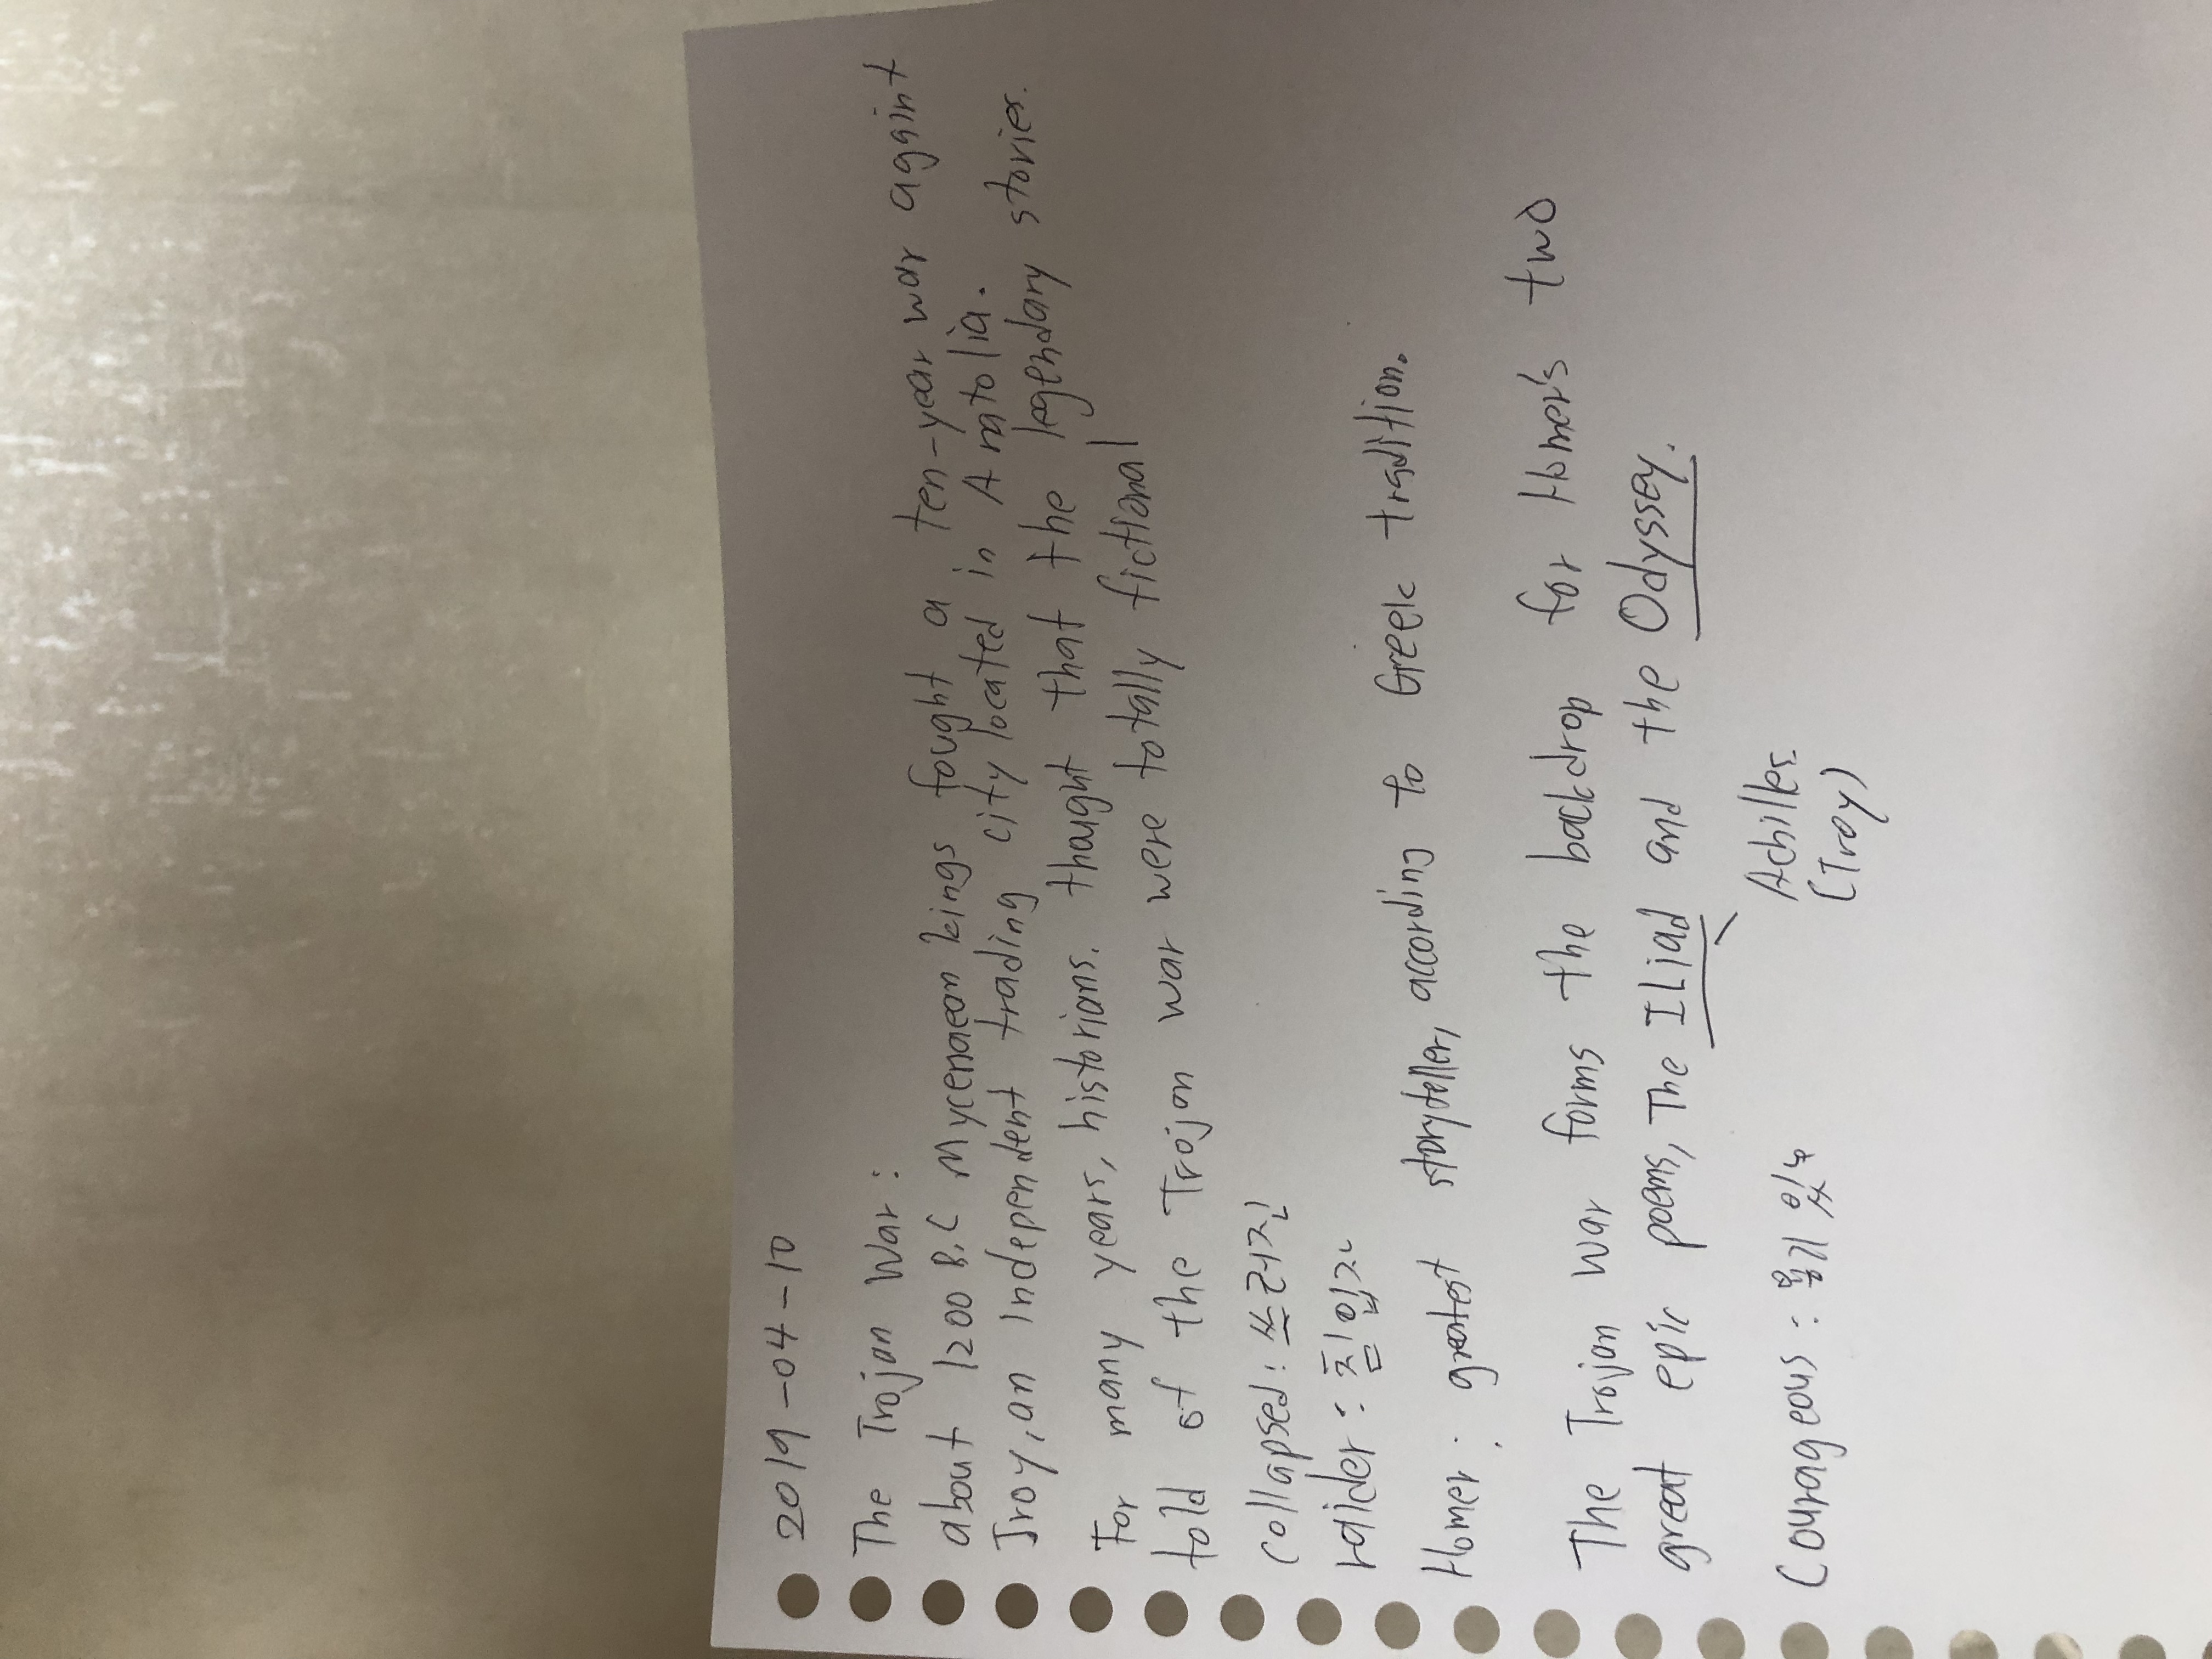 2019-04-10
The Trojan War:
about 1200 B.C Mycenaean kings fought a ten-year war against
Troy, an independent trading city located in Anatolia.
For many years, historians. thought that the legendary stories.
told of the Trojan war were totally fictional
collapsed: 쓰러진
raider: 침입자
Homer: greatest storyteller, according to Greek tradition.
The Trojan war forms the backdrop for Homer's two
great epic poems, The ILiad and the Odyssey.
Achilles
(Troy)
Courageous: 용기 있는